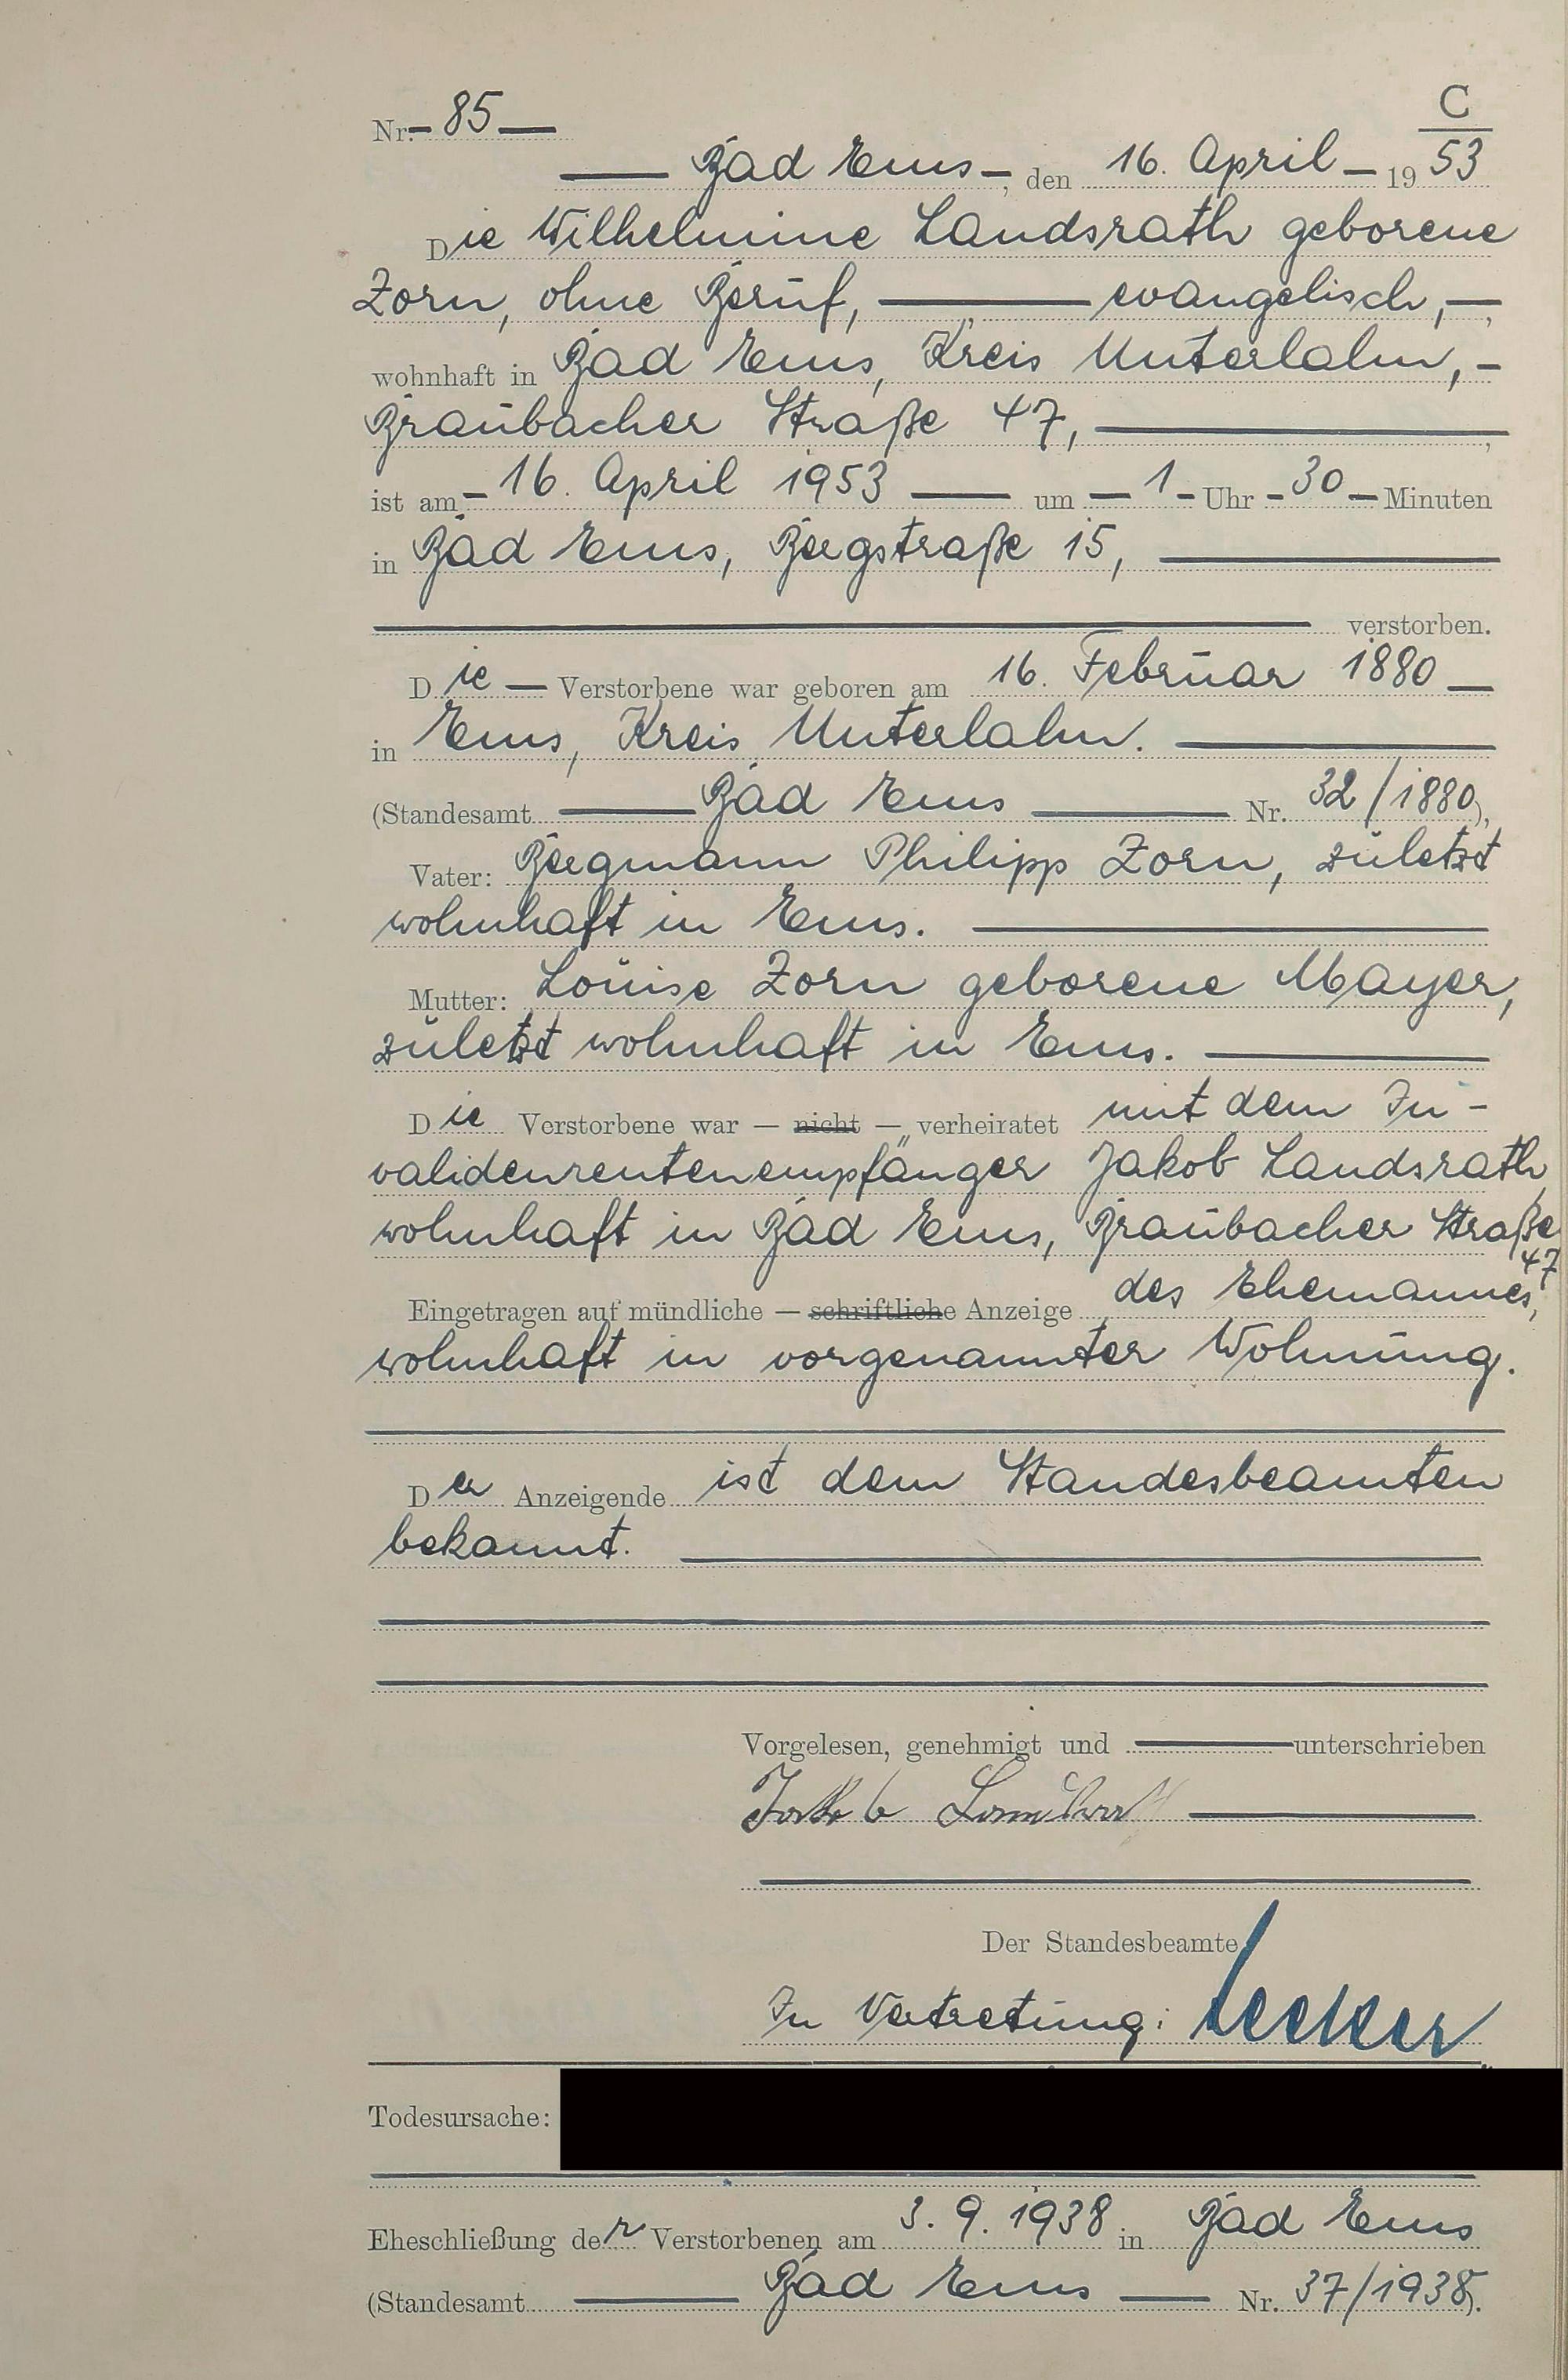 C
Nr. 85
Bad Ems, den 16. April 19 53
Die Wilhelmine Landsrath geborene
Zorn, ohne Beruf, evangelisch,
wohnhaft in Bad Ems, Kreis Unterlahn,
Braubacher Straße 47,
ist am 16. April 1953 um 1 Uhr 30 Minuten
in Bad Ems, Bergstraße 15,
verstorben.
Die Verstorbene war geboren am 16. Februar 1880
in Ems, Kreis Unterlahn.
(Standesamt Bad Ems Nr. 32/1880),
Vater: Bergmann Philipp Zorn, zuletzt
wohnhaft in Ems.
Mutter: Louise Zorn geborene Mayer,
zuletzt wohnhaft in Ems.
Die Verstorbene war — nicht — verheiratet mit dem In-
validenrentenempfänger Jakob Landsrath
wohnhaft in Bad Ems, Braubacher Straße
47
Eingetragen auf mündliche — schriftliche Anzeige des Ehemannes,
wohnhaft in vorgenannter Wohnung.
Der Anzeigende ist dem Standesbeamten
bekannt.
Vorgelesen, genehmigt und unterschrieben
Jakob
Der Standesbeamte
In Vertretung:
Todesursache:
Eheschließung der Verstorbenen am 3. 9. 1938 in Bad Ems
(Standesamt Bad Ems Nr. 37/1938).